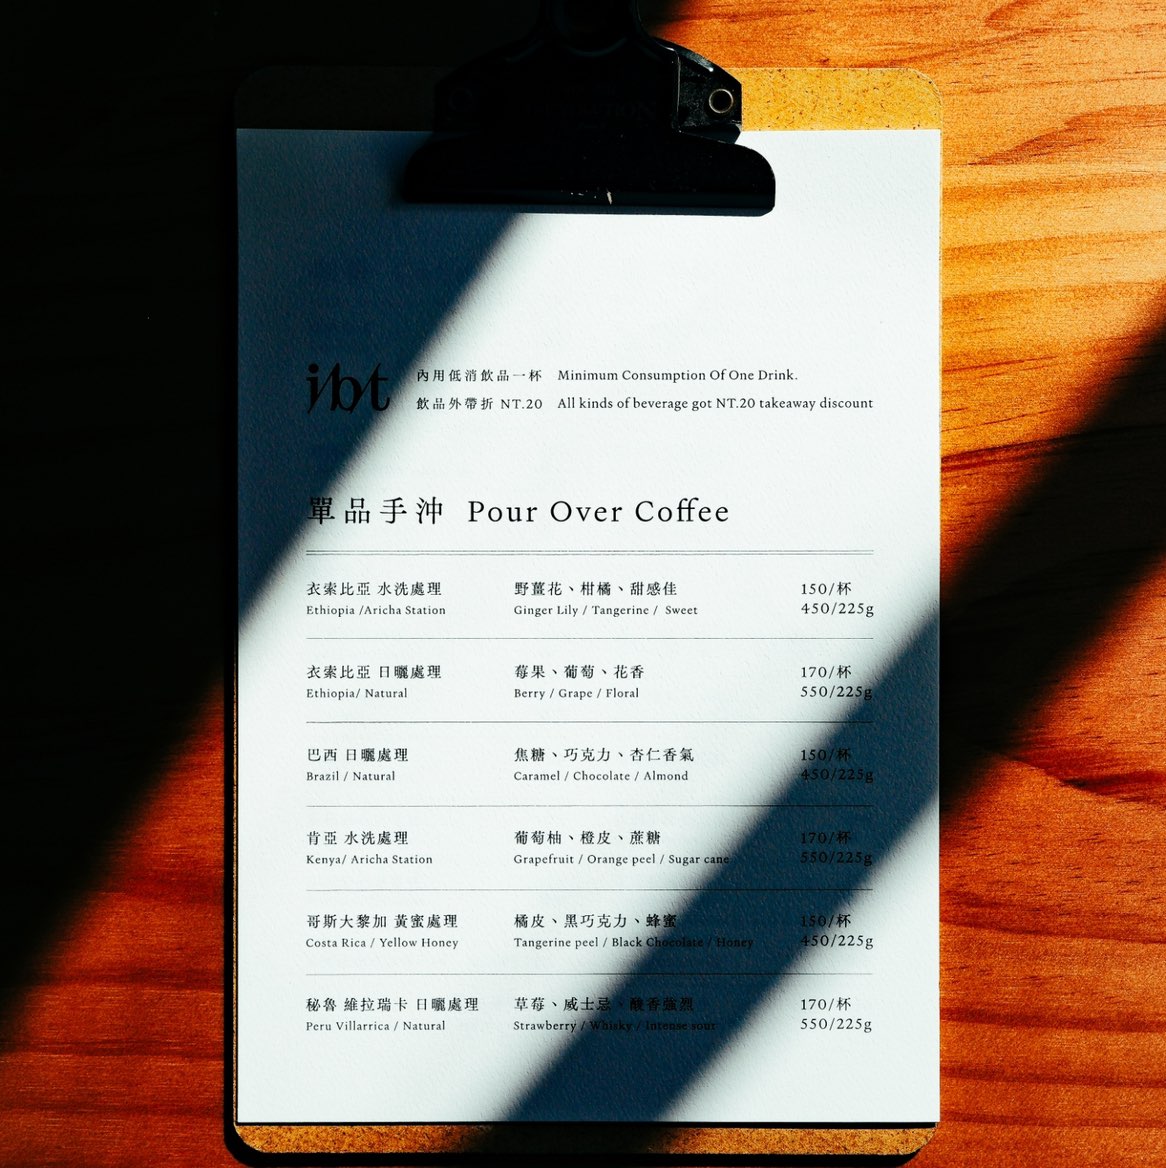 ibt
內用低消飲品一杯 Minimum Consumption Of One Drink.
飲品外帶折 NT.20 All kinds of beverage got NT.20 takeaway discount
單品手沖 Pour Over Coffee
衣索比亞 水洗處理 野薑花、柑橘、甜感佳 150/杯
Ethiopia /Aricha Station Ginger Lily / Tangerine / Sweet 450/225g
衣索比亞 日曬處理 莓果、葡萄、花香 170/杯
Ethiopia/ Natural Berry / Grape / Floral 550/225g
巴西 日曬處理 焦糖、巧克力、杏仁香氣 150/杯
Brazil / Natural Caramel / Chocolate / Almond 450/225g
肯亞 水洗處理 葡萄柚、橙皮、蔗糖 170/杯
Kenya/ Aricha Station Grapefruit / Orange peel / Sugar cane 550/225g
哥斯大黎加 黃蜜處理 橘皮、黑巧克力、蜂蜜 150/杯
Costa Rica / Yellow Honey Tangerine peel / Black Chocolate / Honey 450/225g
秘魯 維拉瑞卡 日曬處理 草莓、威士忌、酸香強烈 170/杯
Peru Villarrica / Natural Strawberry / Whisky / Intense sour 550/225g